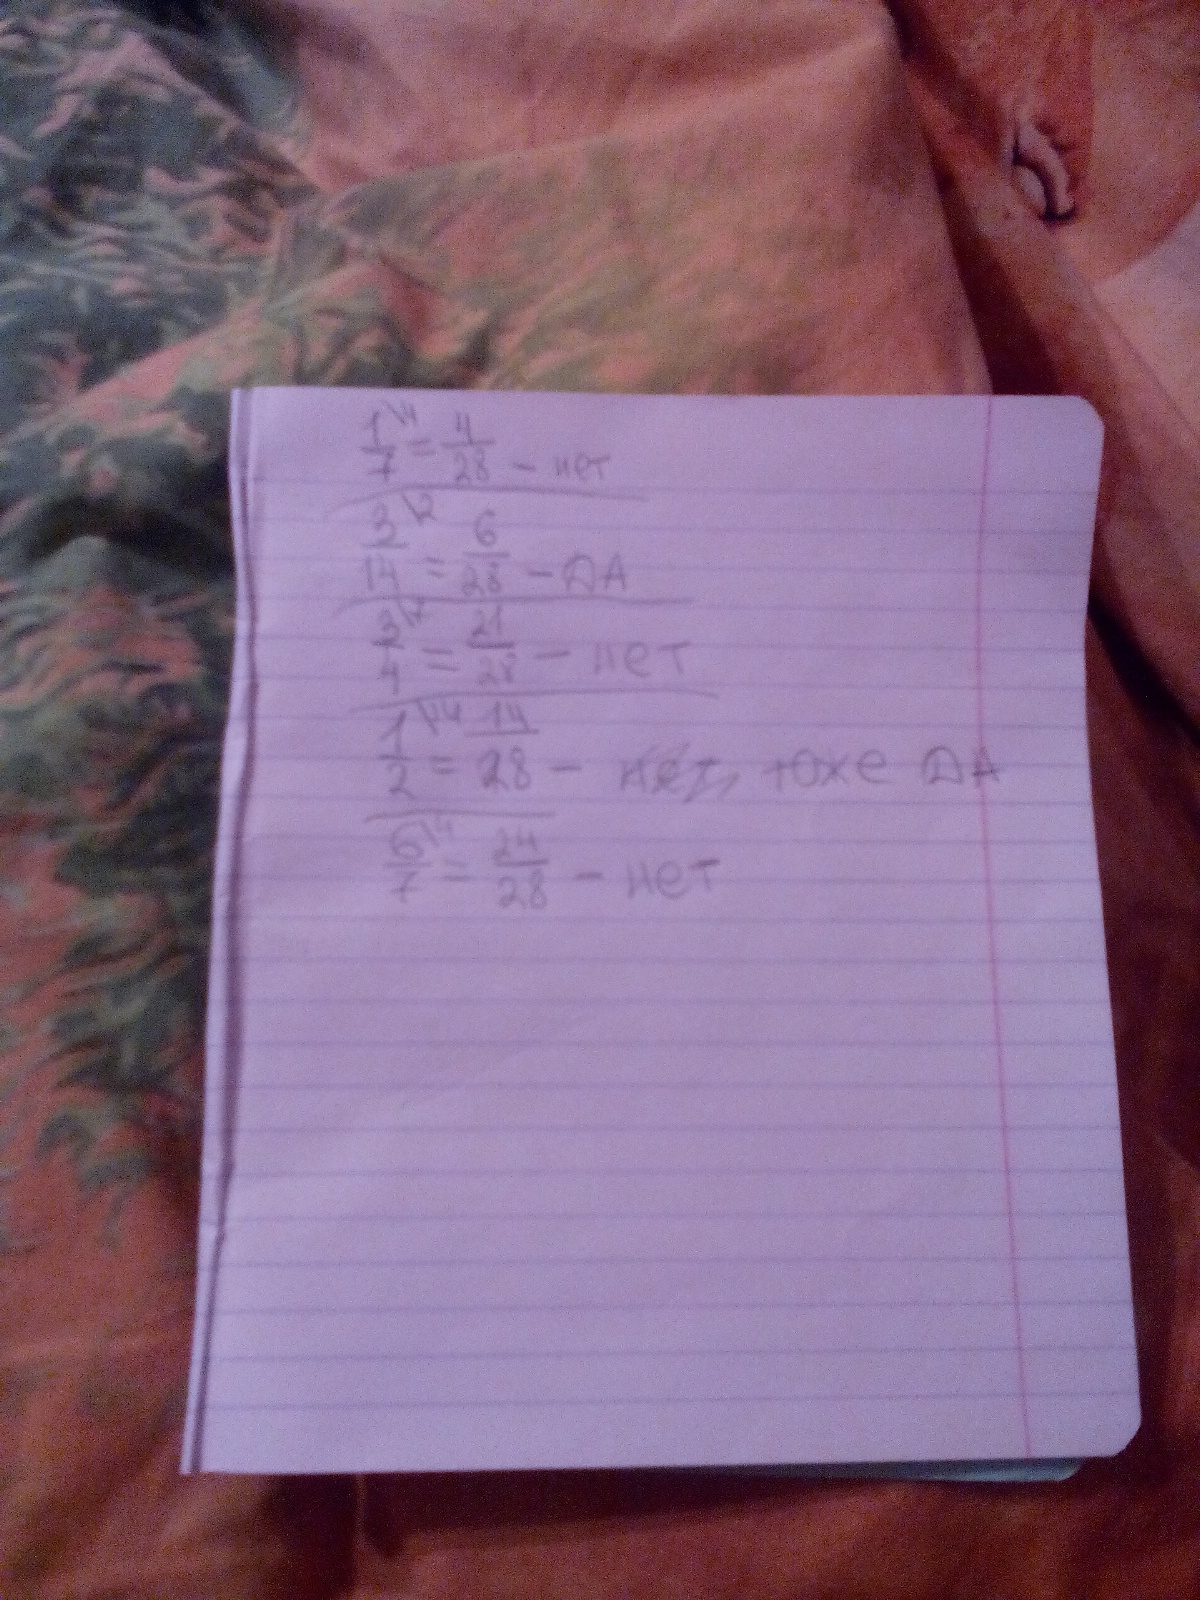 1\4/7 = 4/28 - нет
3\2/14 = 6/28 - DA
3\7/4 = 21/28 - нет
1\14/2 = 14/28 - нет, тоже DA
6\4/7 = 24/28 - нет